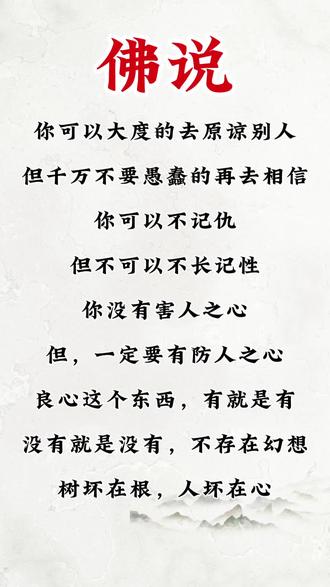 佛说
你可以大度的去原谅别人
但千万不要愚蠢的再去相信
你可以不记仇
但不可以不长记性
你没有害人之心
但，一定要有防人之心
良心这个东西，有就是有
没有就是没有，不存在幻想
树坏在根，人坏在心